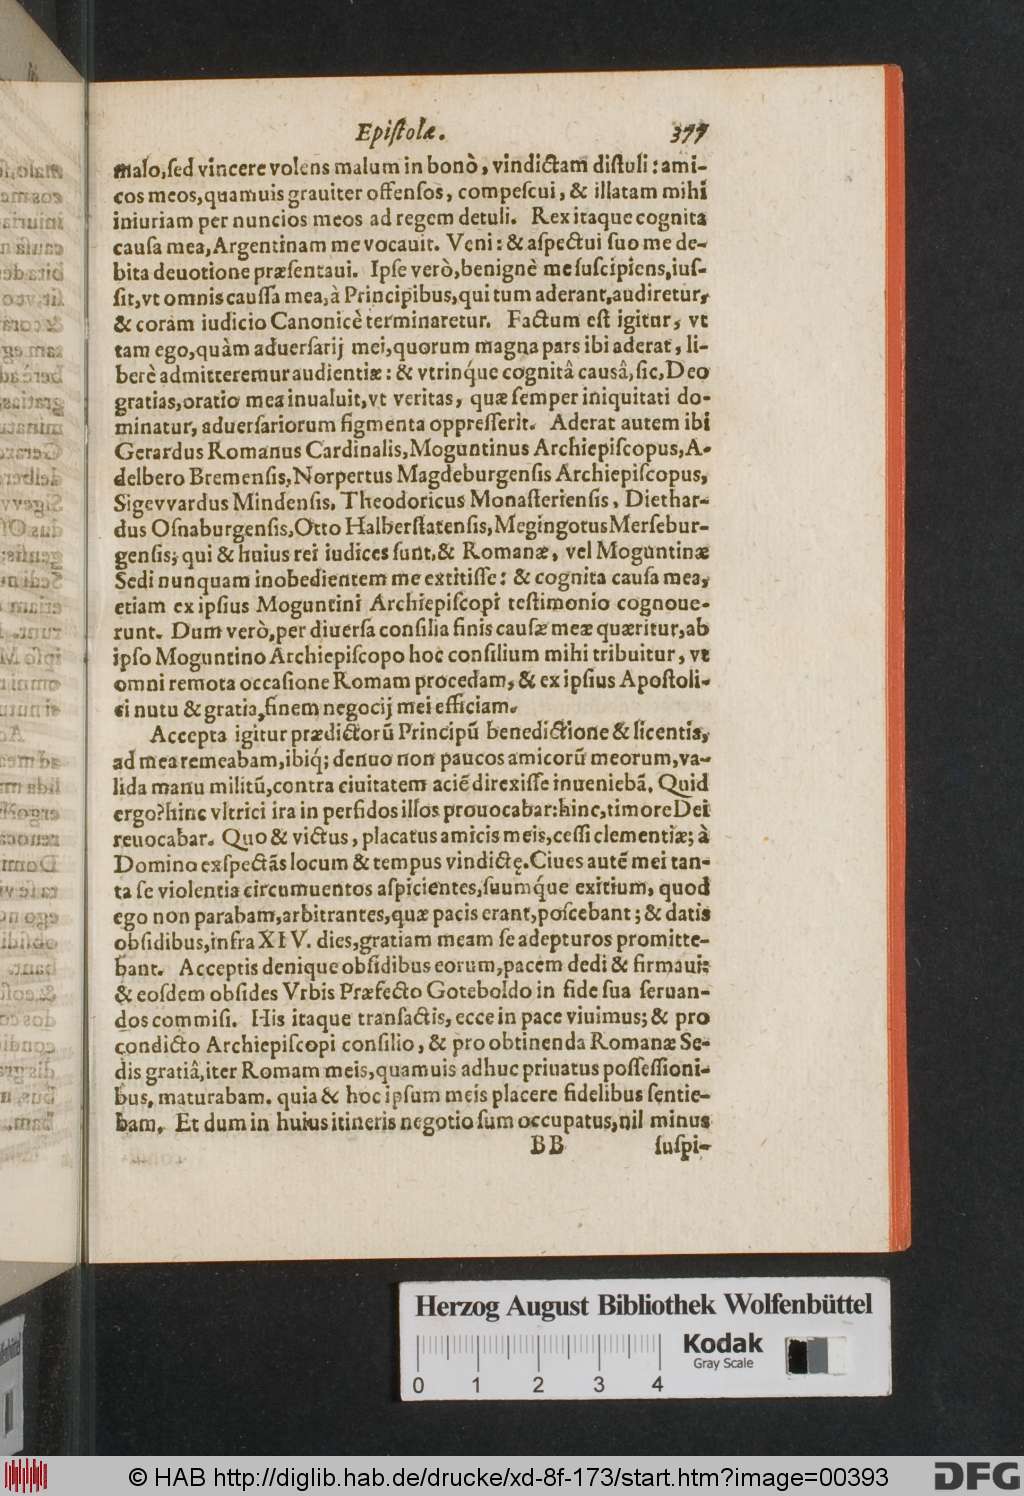 Epiſtolæ. 377
malo, ſed vincere volens malum in bonò, vindictam diſtuli: ami-
cos meos, quamuis grauiter offenſos, compeſcui, & illatam mihi
iniuriam per nuncios meos ad regem detuli. Rex itaque cognita
cauſa mea, Argentinam me vocauit. Veni: & aſpectui ſuo me de-
bita deuotione præſentaui. Ipſe verò, benignè me ſuſcipiens, iuſ-
ſit, vt omnis cauſſa mea, à Principibus, qui tum aderant, audiretur,
& coram iudicio Canonicè terminaretur. Factum eſt igitur, vt
tam ego, quàm aduerſarij mei, quorum magna pars ibi aderat, li-
berè admitteremur audientiæ: & vtrinq́ue cognitâ causâ, ſic, Deo
gratias, oratio mea inualuit, vt veritas, quæ ſemper iniquitati do-
minatur, aduerſariorum figmenta oppreſſerit. Aderat autem ibi
Gerardus Romanus Cardinalis, Moguntinus Archiepiſcopus, A-
delbero Bremenſis, Norpertus Magdeburgenſis Archiepiſcopus,
Sigevvardus Mindenſis, Theodoricus Monaſterienſis, Diethar-
dus Oſnaburgenſis, Otto Halberſtatenſis, Megingotus Merſebur-
genſis; qui & huius rei iudices ſunt, & Romanæ, vel Moguntinæ
Sedi nunquam inobedientem me extitiſſe: & cognita cauſa mea,
etiam ex ipſius Moguntini Archiepiſcopi teſtimonio cognoue-
runt. Dum verò, per diuerſa conſilia finis cauſæ meæ quæritur, ab
ipſo Moguntino Archiepiſcopo hoc conſilium mihi tribuitur, vt
omni remota occaſione Romam procedam, & ex ipſius Apoſtoli-
ci nutu & gratia, finem negocij mei efficiam.
Accepta igitur prædictorū Principū benedictione & licentia,
ad mea remeabam, ibiq́; denuo non paucos amicorū meorum, va-
lida manu militū, contra ciuitatem aciē direxiſſe inueniebā. Quid
ergo? hinc vltrici ira in perfidos illos prouocabar: hinc, timore Dei
reuocabar. Quo & victus, placatus amicis meis, ceſſi clementiæ; à
Domino exſpectās locum & tempus vindictę. Ciues autē mei tan-
ta ſe violentia circumuentos aſpicientes, ſuumq́ue exitium, quod
ego non parabam, arbitrantes, quæ pacis erant, poſcebant; & datis
obſidibus, infra XIV. dies, gratiam meam ſe adepturos promitte-
bant. Acceptis denique obſidibus eorum, pacem dedi & firmaui:
& eoſdem obſides Vrbis Præfecto Goteboldo in fide ſua ſeruan-
dos commiſi. His itaque tranſactis, ecce in pace viuimus; & pro
condicto Archiepiſcopi conſilio, & pro obtinenda Romanæ Se-
dis gratiâ, iter Romam meis, quamuis adhuc priuatus poſſeſſioni-
bus, maturabam. quia & hoc ipſum meis placere fidelibus ſentie-
bam. Et dum in huius itineris negotio ſum occupatus, nil minus
BB ſuſpi-
Herzog August Bibliothek Wolfenbüttel
Kodak
Gray Scale
0 1 2 3 4
© HAB http://diglib.hab.de/drucke/xd-8f-173/start.htm?image=00393
DFG